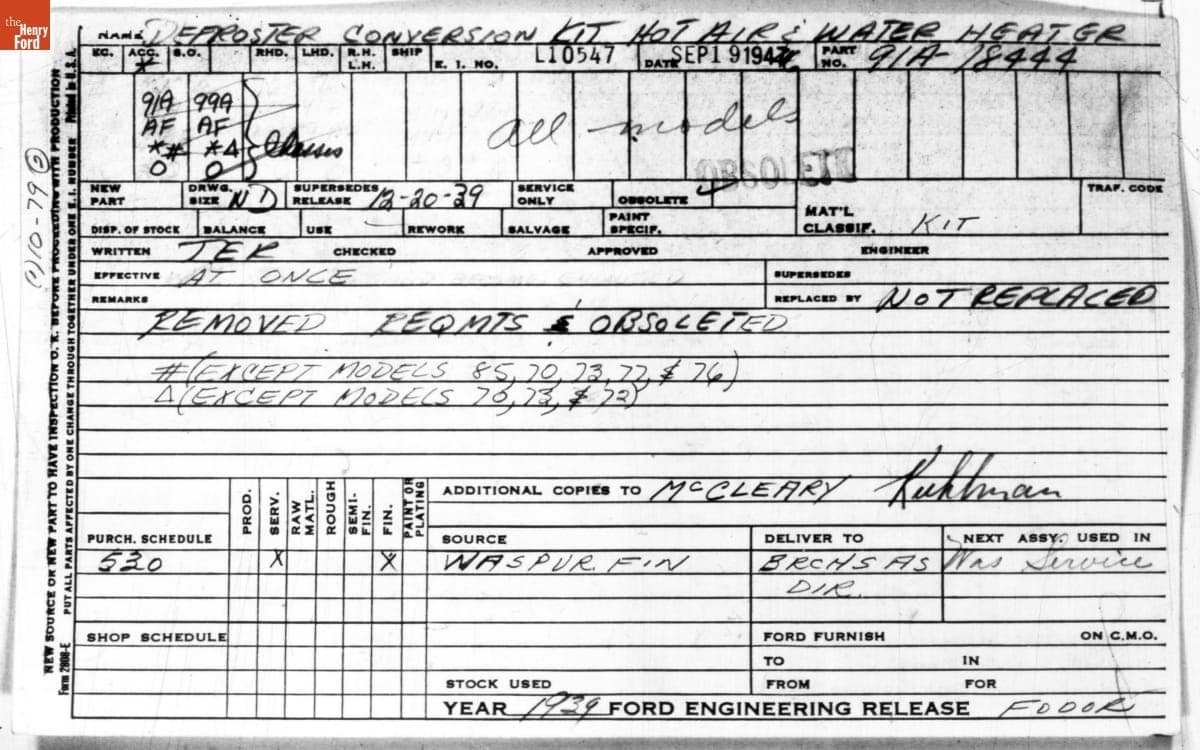 the
Henry
Ford
NAME DEFROSTER CONVERSION KIT HOT AIR & WATER HEATER
KC. ACC. S.O. RHD. LHD. R.H. L.H. SHIP E. I. NO. L10547 DATE SEP 19 194 PART NO. 91A-18444
*
91A 99A
AF AF
*# *Δ Chassis
O O
all models
OBSOLETE
NEW PART DRWG. SIZE ND SUPERSEDES RELEASE 12-20-39 SERVICE ONLY OBSOLETE ✓ TRAF. CODE
DISP. OF STOCK BALANCE USE REWORK SALVAGE PAINT SPECIF. MAT'L CLASSIF. KIT
WRITTEN TER CHECKED APPROVED ENGINEER
EFFECTIVE AT ONCE SUPERSEDES
REMARKS REPLACED BY NOT REPLACED
REMOVED REQMTS & OBSOLETED
#(EXCEPT MODELS 85, 70, 73, 77, & 76)
Δ(EXCEPT MODELS 70, 73, & 72)
ADDITIONAL COPIES TO McCLEARY
PURCH. SCHEDULE PROD. SERV. RAW MATL. ROUGH SEMI-FIN. FIN. PAINT OR PLATING SOURCE DELIVER TO NEXT ASSY. USED IN
530 X X WAS PUR. FIN BRCHS AS DIR. Was Service
SHOP SCHEDULE FORD FURNISH ON C.M.O.
TO IN
STOCK USED FROM FOR
YEAR 1939 FORD ENGINEERING RELEASE FODOR
NEW SOURCE OR NEW PART TO HAVE INSPECTION O. K. BEFORE PROCEEDING WITH PRODUCTION
Form 2808-E PUT ALL PARTS AFFECTED BY ONE CHANGE THROUGH TOGETHER UNDER ONE E. I. NUMBER Printed in U.S.A.
(1) 10-79 (2)